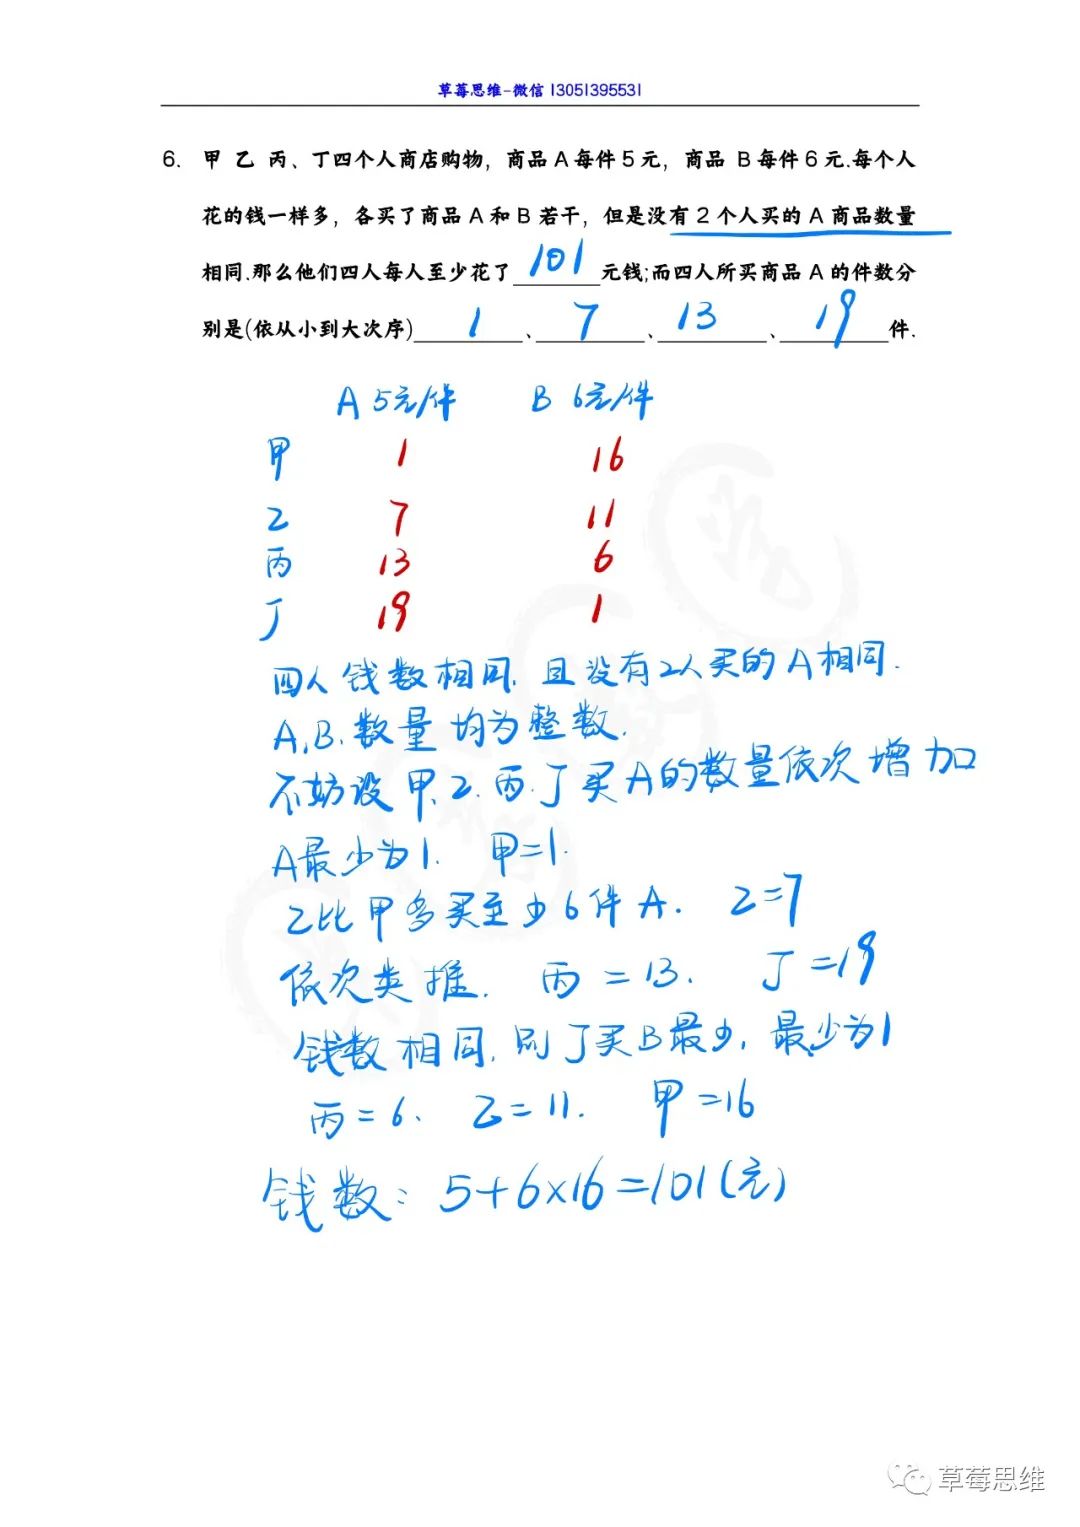 草莓思维-微信 13051395531
6. 甲 乙 丙、丁四个人商店购物，商品 A 每件 5 元，商品 B 每件 6 元.每个人
花的钱一样多，各买了商品 A 和 B 若干，但是没有 2 个人买的 A 商品数量
相同.那么他们四人每人至少花了 101 元钱;而四人所买商品 A 的件数分
别是(依从小到大次序) 1 、 7 、 13 、 19 件.
A 5元/件 B 6元/件
甲 1 16
乙 7 11
丙 13 6
丁 19 1
四人钱数相同. 且没有2人买的A相同.
A.B.数量均为整数.
不妨设甲.乙.丙.丁买A的数量依次增加
A最少为1. 甲=1.
乙比甲多买至少6件A. 乙=7
依次类推. 丙=13. 丁=19
钱数相同,则丁买B最少,最少为1
丙=6. 乙=11. 甲=16
钱数: 5+6×16=101(元)
草莓思维